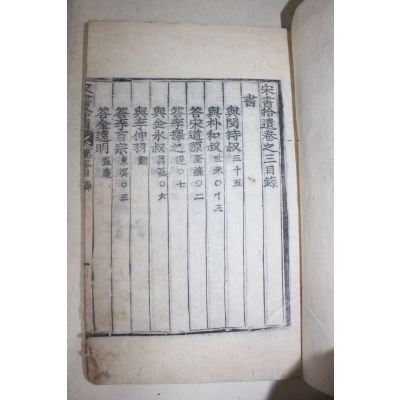 宋書拾遺卷之三目錄
書
與閔持叔三十五
與朴和叔世采○十三
答宋道源奎濂○二
答李擇之選○七
與金永叔萬基○六
與李仲羽䎘
答李百宗東溟○三
答金遠明
宋書拾遺 卷三目錄